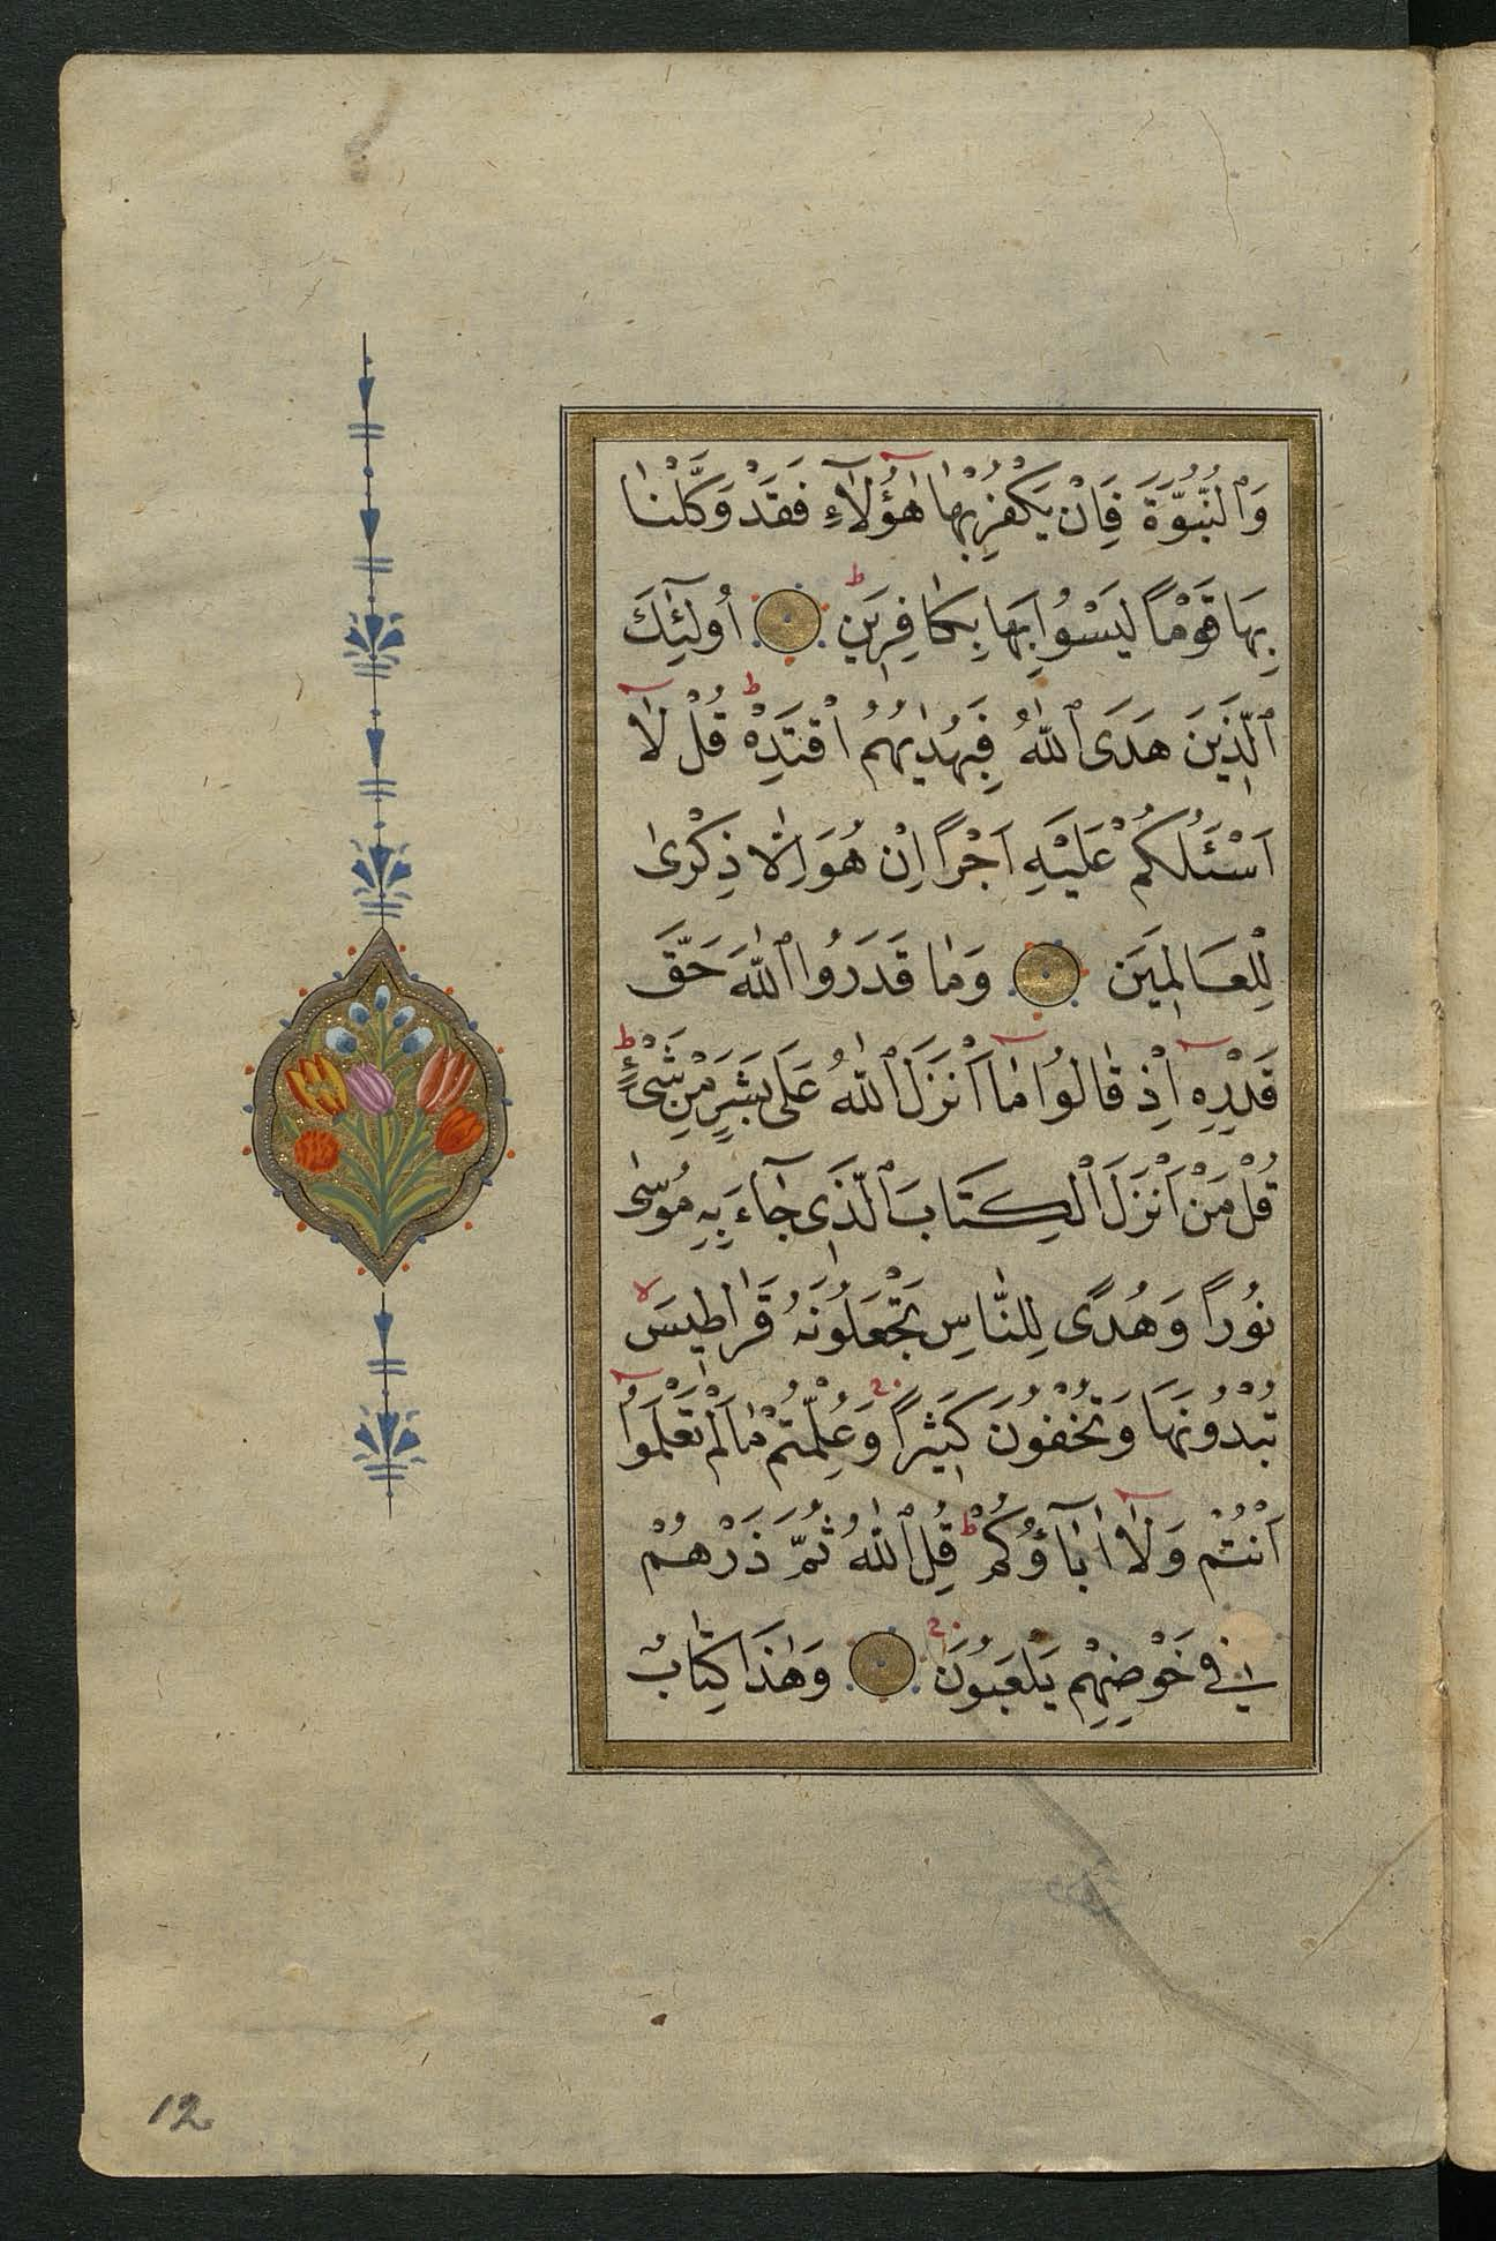 وَٱلنُّبُوَّةَ فَاِنْ يَكْفُرْ بِهٰا هٰٓؤُلَآءِ فَقَدْ وَكَّلْنٰا
بِهَا قَوْمًا لَيْسُوا بِهَا بِكٰافِرِينَ ط اُولٰٓئِكَ
ٱلَّذِينَ هَدَى ٱللّٰهُ فَبِهُدٰيهُمُ اقْتَدِهْ ط قُلْ لٰٓا
اَسْئَلُكُمْ عَلَيْهِ اَجْرًا اِنْ هُوَ اِلّٰا ذِكْرٰى
لِلْعَالَمِينَ وَمٰا قَدَرُوا ٱللّٰهَ حَقَّ
قَدْرِهِٓ اِذْ قٰالُوا مٰٓا اَنْزَلَ ٱللّٰهُ عَلَى بَشَرٍ مِنْ شَىْءٍ ط
قُلْ مَنْ اَنْزَلَ ٱلْكِتَابَ ٱلَّذِى جٰٓاءَ بِهِ مُوسٰى
نُورًا وَهُدًى لِلنّٰاسِ تَجْعَلُونَهُ قَرٰاطِيسَ لا
تُبْدُونَهَا وَتُخْفُونَ كَثِيرًا وَعُلِّمْتُمْ مٰا لَمْ تَعْلَمُوٓا
اَنْتُمْ وَلٰٓا اٰبٰٓاؤُكُمْ ط قُلِ ٱللّٰهُ ثُمَّ ذَرْهُمْ
فِي خَوْضِهِمْ يَلْعَبُونَ وَهٰذَا كِتٰابٌ
12